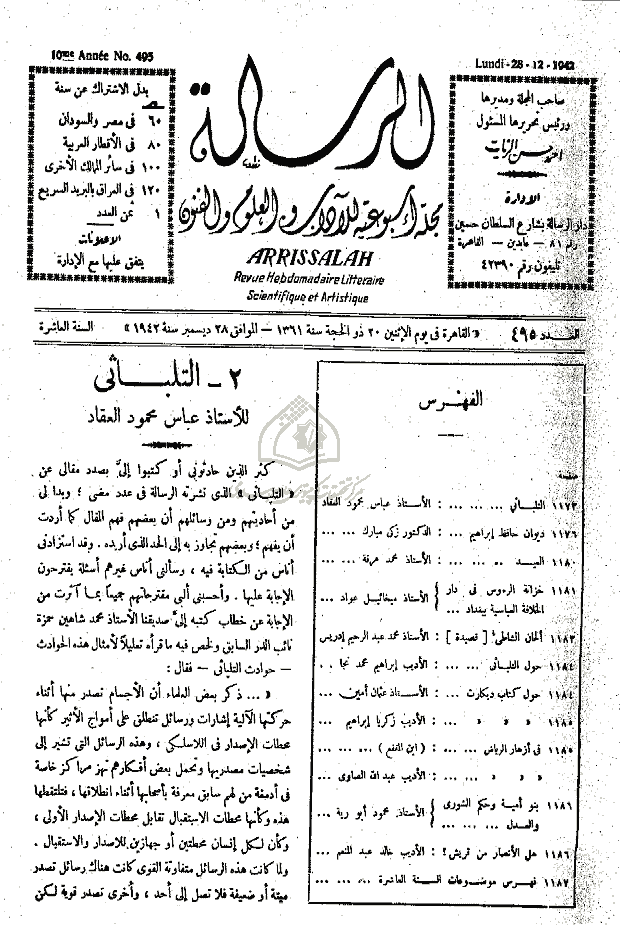 10me Année No. 495
Lundi - 28 - 12 - 1942
بدل الاشتراك عن سنة
٦٠ فى مصر والسودان
٨٠ فى الأقطار العربية
١٠٠ فى سائر الممالك الأخرى
١٢٠ فى العراق بالبريد السريع
١ ثمن العدد
الاعلانات
يتفق عليها مع الإدارة
الرسالة
مجلة أسبوعية للآداب والعلوم والفنون
ARRISSALAH
Revue Hebdomadaire Litteraire
Scientifique et Artistique
صاحب المجلة ومديرها
ورئيس تحريرها المسئول
احمد حسن الزيات
الادارة
دار الرسالة بشارع السلطان حسين
رقم ٨١ — عابدين — القاهرة
تليفون رقم ٤٢٣٩٠
العدد ٤٩٥
« القاهرة فى يوم الإثنين ٢٠ ذو الحجة سنة ١٣٦١ — الموافق ٢٨ ديسمبر سنة ١٩٤٢ »
السنة العاشرة
الفهرس
صفحة
١١٧٣ التلباثى ... ... ... : الأستاذ عباس محمود العقاد
١١٧٦ ديوان حافظ إبراهيم ... : الدكتور زكى مبارك ...
١١٨٠ العيد ... ... ... : الأستاذ محمد عرفة ...
١١٨١ خزانة الرءوس فى دار الخلافة العباسية ببغداد ... } الأستاذ ميخائيل عواد ...
١١٨٣ ألحان الشاطئ [ قصيدة ] : الأستاذ محمد عبد الرحيم إدريس
١١٨٤ حول التلباثى ... ... : الأديب إبراهيم محمد نجا
١١٨٤ حول كتاب ديكارت ... : الأستاذ عثمان أمين ...
١١٨٥ » » » ... : الأديب زكريا إبراهيم ...
١١٨٥ فى أزهار الرياض ... ... : ( ابن المقفع ) ... ...
» » » ... : الأديب عبد الله الصاوى ...
١١٨٦ بنو أمية وحكم الشورى والعدل ... ... ... } الأستاذ محمود أبو رية ...
١١٨٦ هل الأنصار من قريش ؟ : الأديب خالد عبد المنعم ...
١١٨٧ فهرس موضوعات السنة العاشرة ... ... ... ...
٢ - التلباثى
للأستاذ عباس محمود العقاد
كثر الذين حادثونى أو كتبوا إلىّ بصدد مقالى عن
« التلباثى » الذى نشرته الرسالة فى عدد مضى ؛ وبدا لى
من أحاديثهم ومن رسائلهم أن بعضهم فهم المقال كما أردت
أن يفهم ؛ وبعضهم تجاوز به إلى الحد الذى أريده . وقد استزادنى
أناس من الكتابة فيه ، وسألنى أناس غيرهم أسئلة يقترحون
الإجابة عليها . وأحسبنى ألبى مقترحاتهم جميعاً بما آثرت من
الإجابة عن خطاب كتبه إلىّ صديقنا الأستاذ محمد شاهين حمزة
نائب الدر السابق ولخص فيه ما قرأه تعليلاً لأمثال هذه الحوادث
— حوادث التلباثى — فقال :
« ... ذكر بعض العلماء أن الأجسام تصدر منها أثناء
حركتها الآلية إشارات ورسائل تنطلق على أمواج الأثير كأنها
محطات الإصدار فى اللاسلكى ، وهذه الرسائل التى تشير إلى
شخصيات مصدريها وتحمل بعض أفكارهم تهز مراكز خاصة
فى أدمغة من لهم سابق معرفة بأصحابها أثناء انطلاقها ، فتلتقطها
هذه وكأنها محطات الاستقبال تقابل محطات الإصدار الأولى ،
وكأن لكل إنسان محطتين أو جهازين للاصدار والاستقبال .
ولما كانت هذه الرسائل متفاوتة القوى كانت هناك رسائل تصدر
ميتة أو ضعيفة فلا تصل إلى أحد ، وأخرى تصدر قوية لكن